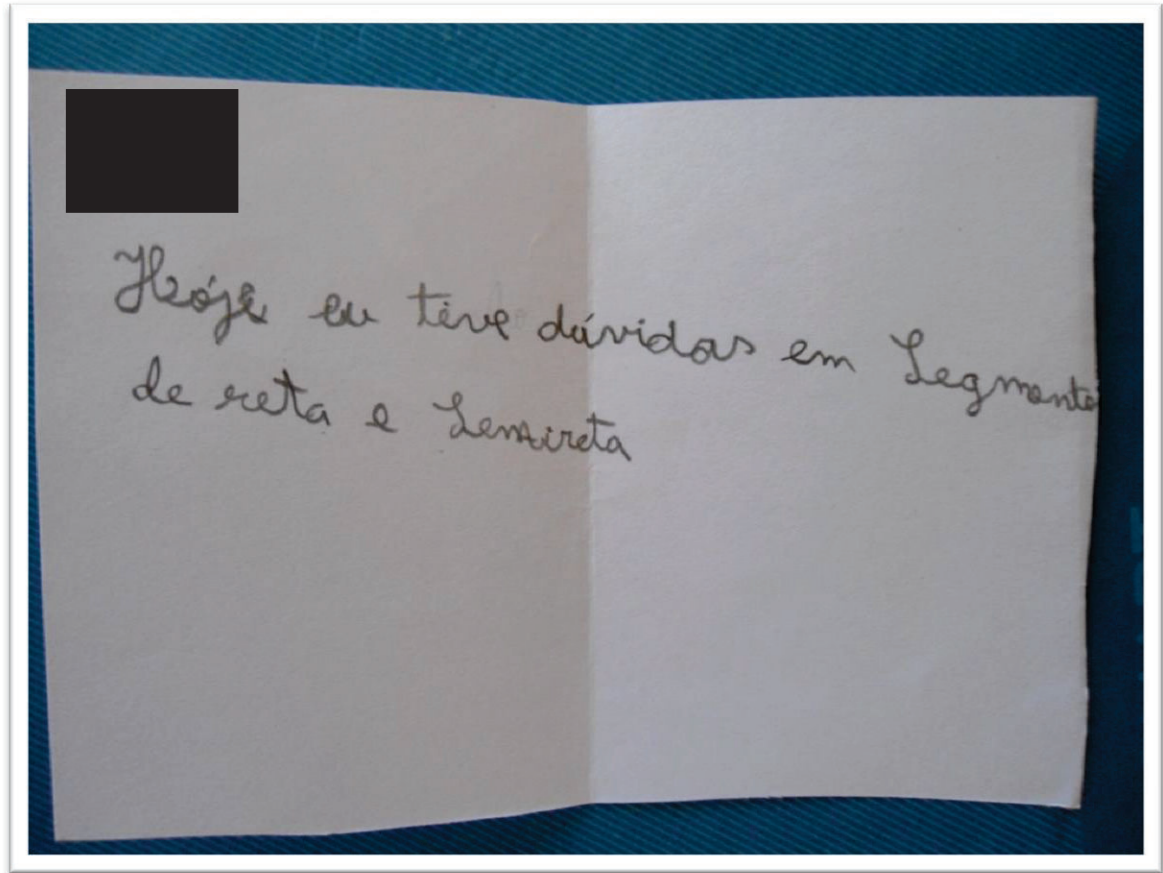 Hóje eu tive dúvidas em Segmento
de reta e Semireta